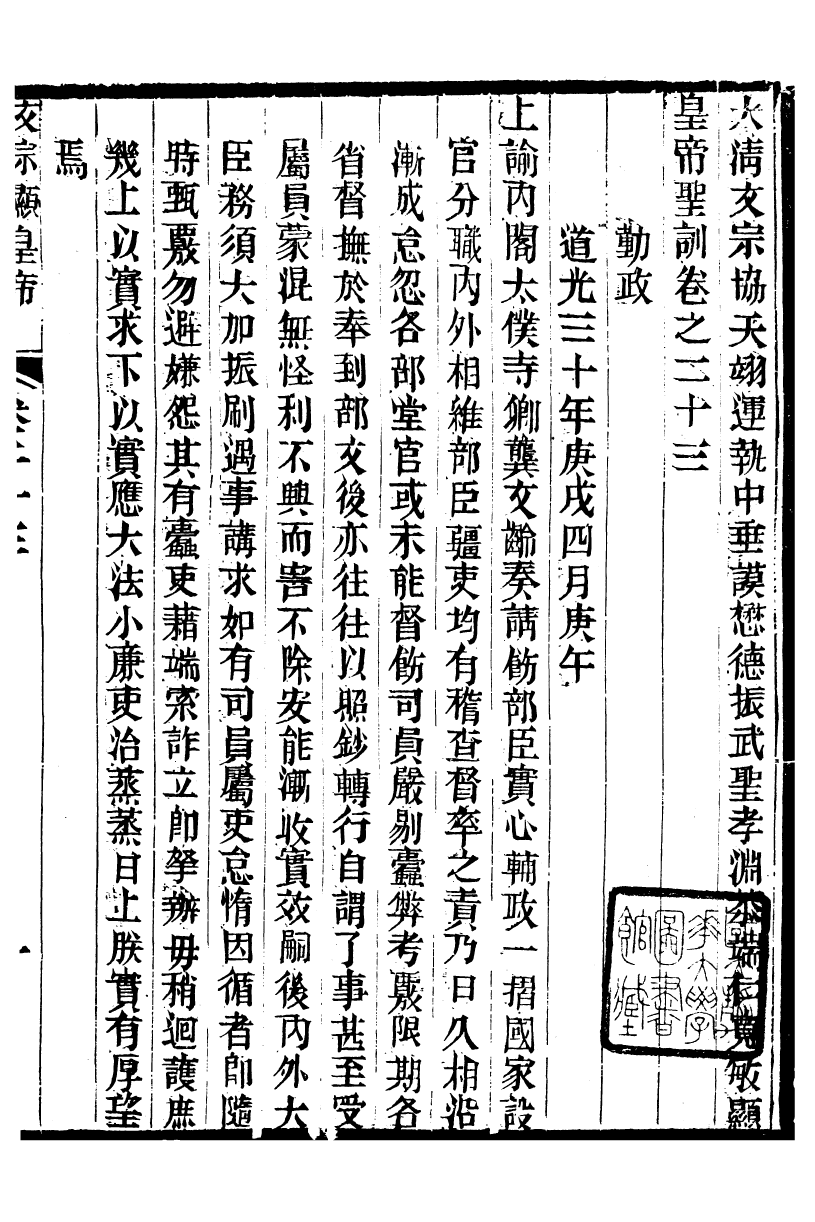 大清文宗協天翊運執中垂謨懋德振武聖孝淵恭端仁寬敏顯
皇帝聖訓卷之二十三
勤政
道光三十年庚戌四月庚午
上諭內閣太僕寺卿龔文齡奏請飭部臣實心輔政一摺國家設
官分職內外相維部臣疆吏均有稽查督率之責乃日久相沿
漸成怠忽各部堂官或未能督飭司員嚴剔蠹弊考覈限期各
省督撫於奉到部文後亦往往以照鈔轉行自謂了事甚至受
屬員蒙混無怪利不興而害不除安能漸收實效嗣後內外大
臣務須大加振刷遇事講求如有司員屬吏怠惰因循者即隨
時甄覈勿避嫌怨其有蠹吏藉端索詐立即拏辦毋稍迴護庶
幾上以實求下以實應大法小廉吏治蒸蒸日上朕實有厚望
焉
文宗顯皇帝 卷二十三 一
大學
圖書
館藏